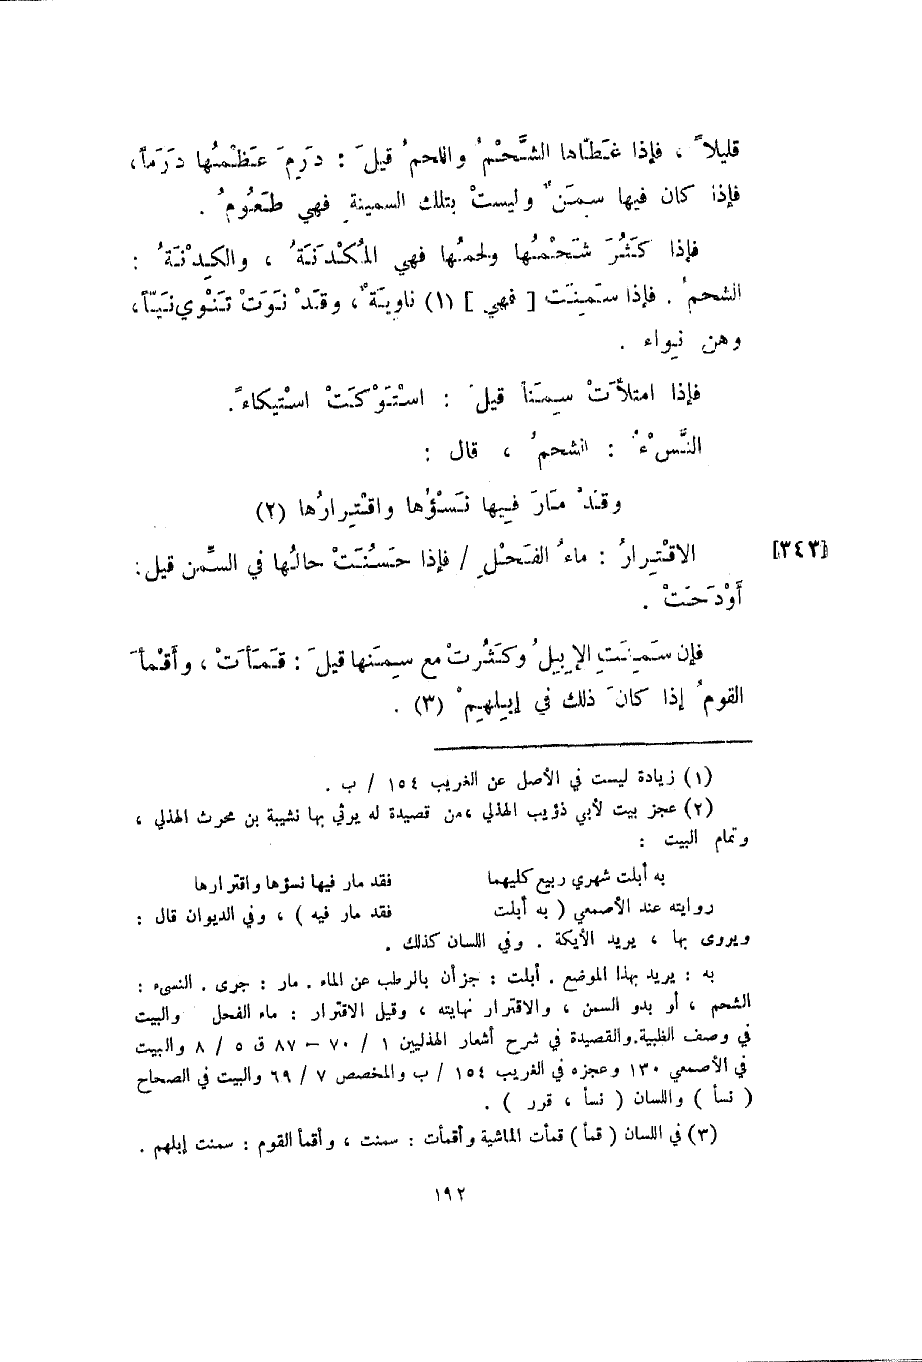 قليلاً ، فإذا غَطّاها الشَّحْمُ واللحمُ قيلَ : دَرِمَ عَظْمُها دَرَماً،
فإذا كان فيها سِمَنٌ وليستْ بتلك السمينةِ فهي طَعُومُ .
فإذا كَثُرَ شَحْمُها ولحمُها فهي المُكْدَنَةُ ، والكِدْنَةُ :
الشحمُ . فإذا سَمِنَت [ فهي ] (١) ناوِيَةٌ، وقَدْ نَوَتْ تَنْوي نَيّاً،
وهن نِواء .
فإذا امتلأَتْ سِمَناً قيلَ : اسْتَوْكَتْ اسْتِيكاءً.
النَّسْءُ : الشحمُ ، قال :
وقَدْ مَارَ فِيها نَسْؤُها واقْتِرارُها (٢)
[٣٤٣] الاقْتِرارُ : ماءُ الفَحْلِ / فإذا حَسُنَتْ حالُها في السِّمن قيل:
أَوْدَحَتْ .
فإن سَمِنَتِ الإِبِلُ وكَثُرتْ مع سِمَنِها قيلَ : قَمَأَتْ ، وأَقْمأَ
القومُ إذا كانَ ذلك في إِبِلِهِمْ (٣) .
(١) زيادة ليست في الأصل عن الغريب ١٥٤ / ب .
(٢) عجز بيت لأبي ذؤيب الهذلي ،من قصيدة له يرثي بها نشيبة بن محرث الهذلي ،
وتمام البيت :
به أبلت شهري ربيع كليهما فقد مار فيها نسؤها واقترارها
روايته عند الأصمعي ( به أبلت فقد مار فيه ) ، وفي الديوان قال :
ويروى بها ، يريد الأيكة . وفي اللسان كذلك .
به : يريد بهذا الموضع . أبلت : جزأن بالرطب عن الماء . مار : جرى . النسيء :
الشحم ، أو بدو السمن ، والاقترار نهايته ، وقيل الاقترار : ماء الفحل والبيت
في وصف الظبية.والقصيدة في شرح أشعار الهذليين ١ / ٧٠ – ٨٧ ق ٥ / ٨ والبيت
في الأصمعي ١٣٠ وعجزه في الغريب ١٥٤ / ب والمخصص ٧ / ٦٩ والبيت في الصحاح
( نسأ ) واللسان ( نسأ ، قرر ) .
(٣) في اللسان ( قمأ ) قمأت الماشية وأقمأت : سمنت ، وأقمأ القوم : سمنت إبلهم .
١٩٢